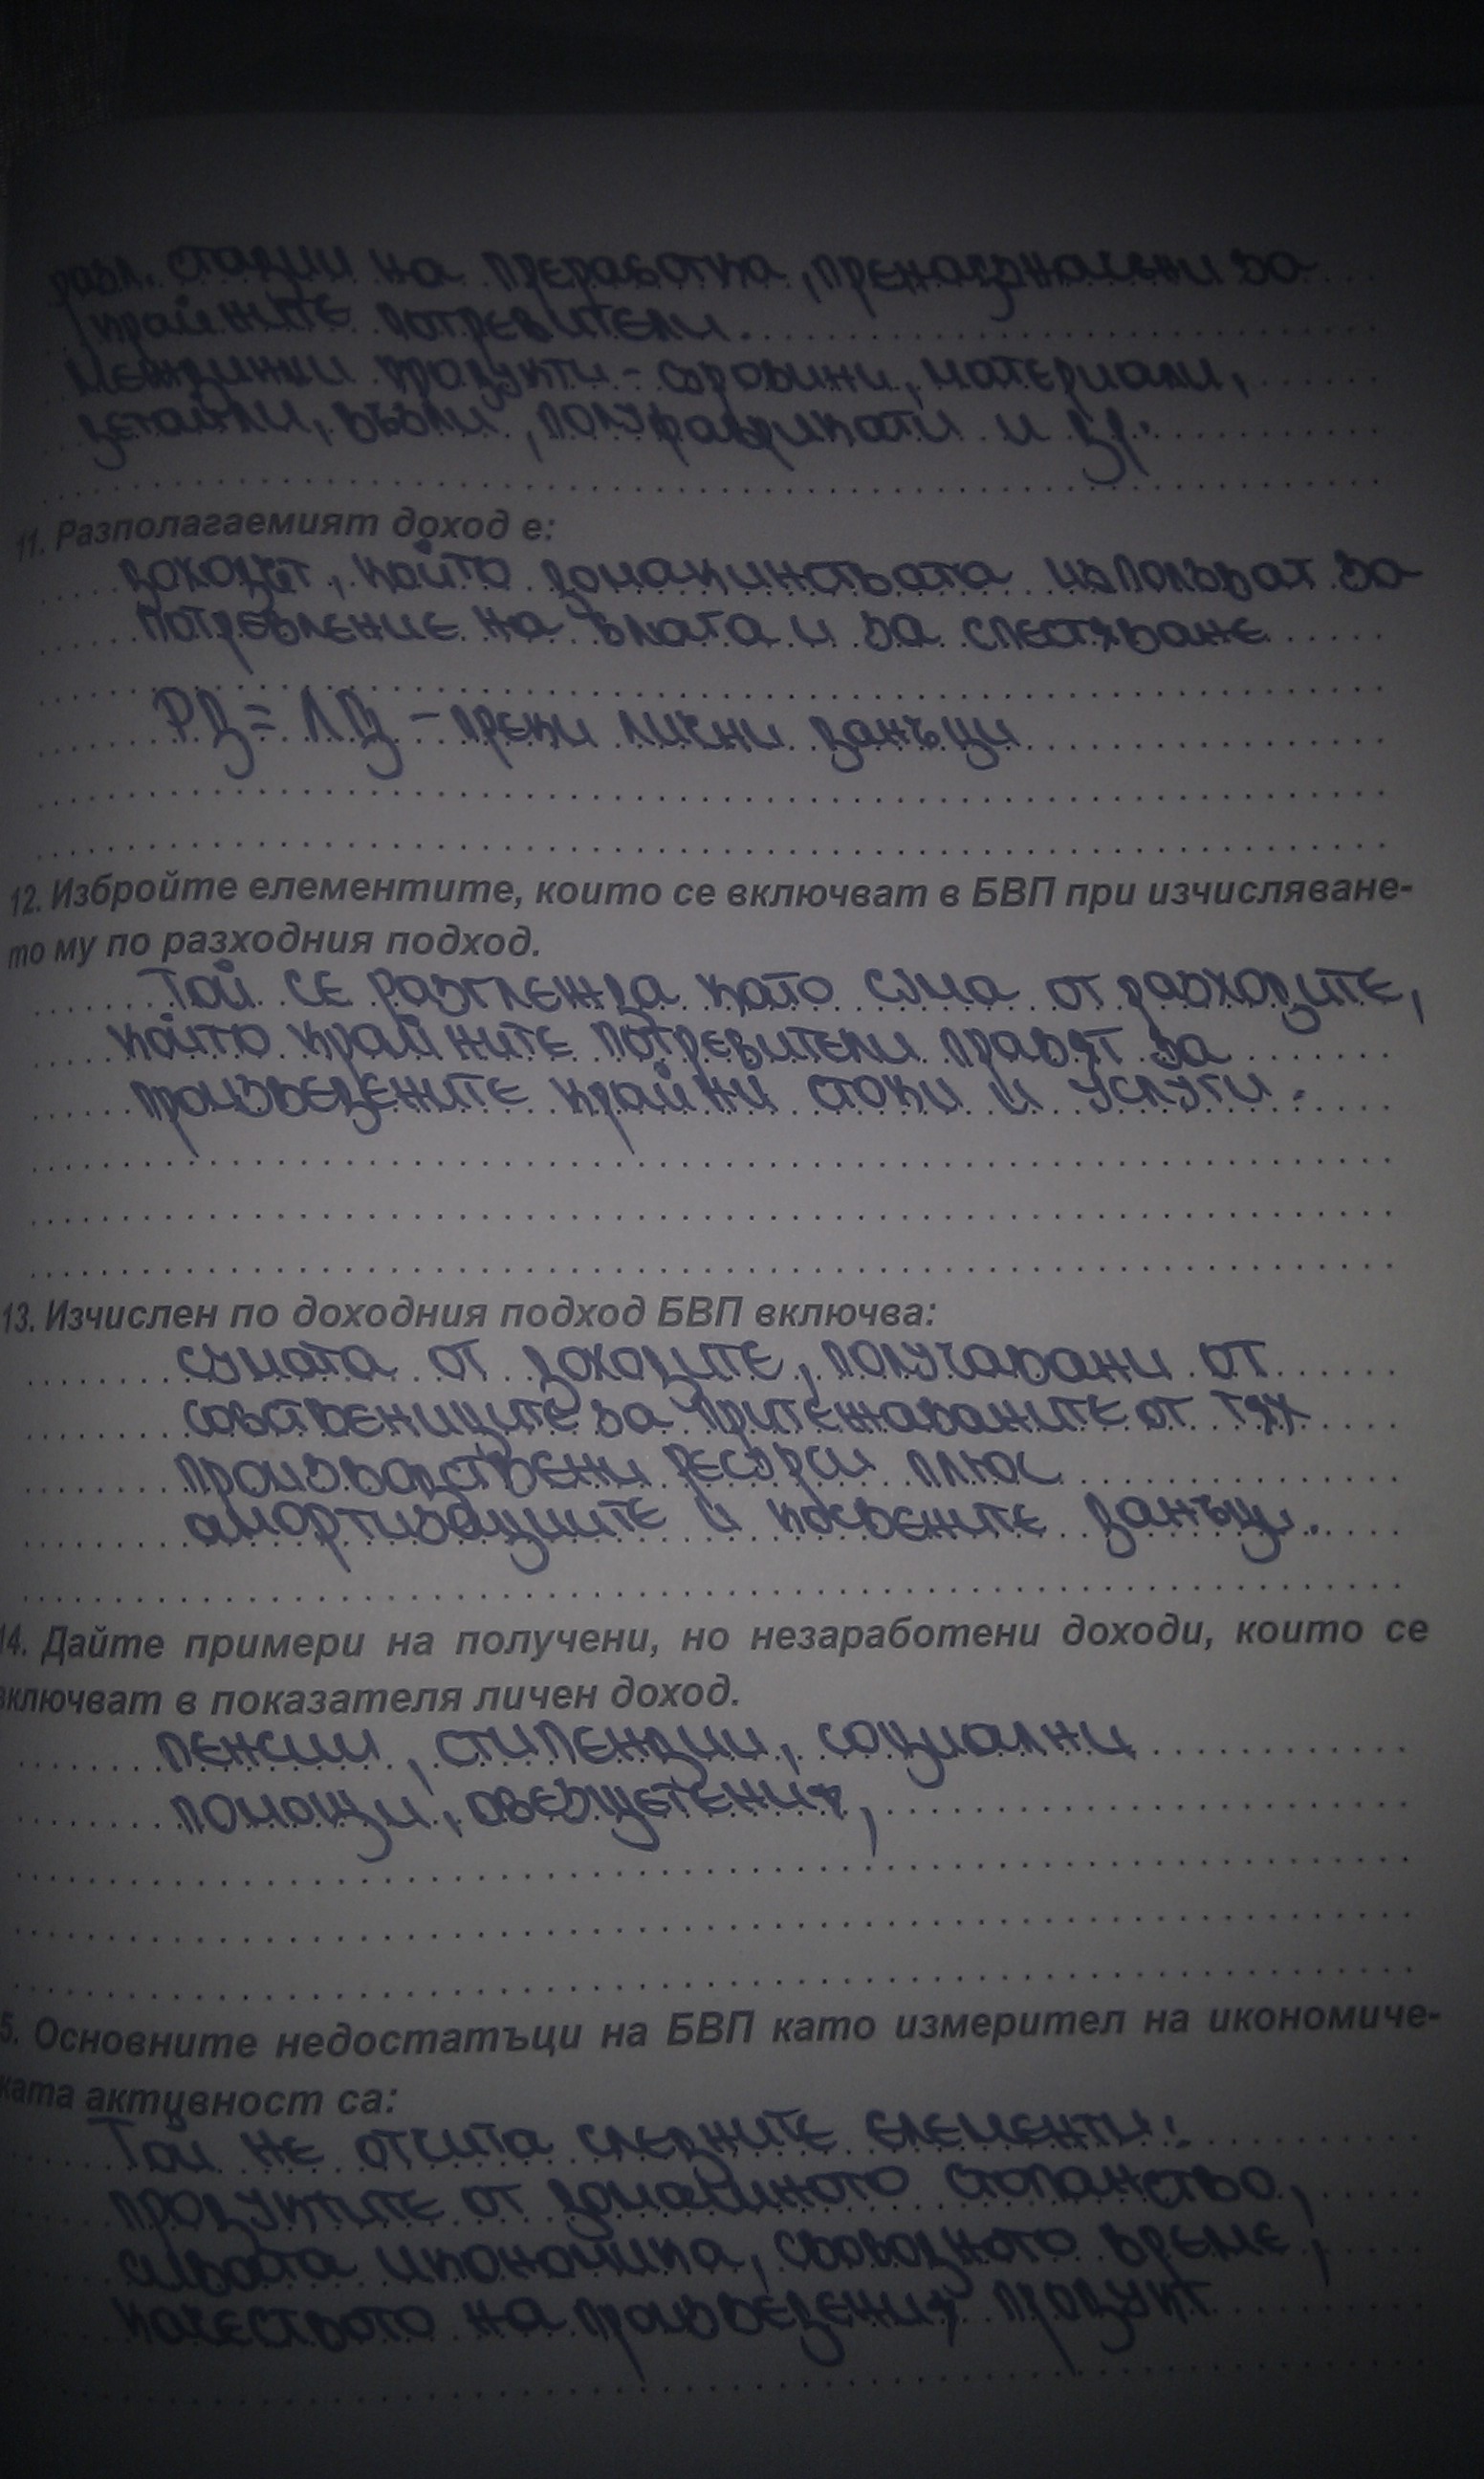 разл. стадии на преработка, пренасзначени за
крайните потребители.
Междинни продукти - суровини, материали,
детайли, възли, полуфабрикати и др.
11. Разполагаемият доход е:
доходът, който домакинствата използват за
потребление на блага и за спестяване
РД = ЛД - преки лични данъци
12. Избройте елементите, които се включват в БВП при изчисляване-
то му по разходния подход.
Той се разглежда като сума от разходите,
който крайните потребители правят за
произведените крайни стоки и услуги.
13. Изчислен по доходния подход БВП включва:
сумата от доходите, получавани от
собствениците за притежаваните от тях
производствени ресурси плюс
амортизациите и косвените данъци.
14. Дайте примери на получени, но незаработени доходи, които се
включват в показателя личен доход.
пенсии, стипендии, социални
помощи, обезщетения,
5. Основните недостатъци на БВП като измерител на икономиче-
ката активност са:
Той не отчита следните елементи:
продуктите от домашното стопанство,
сивата икономика, свободното време,
качеството на произведения продукт